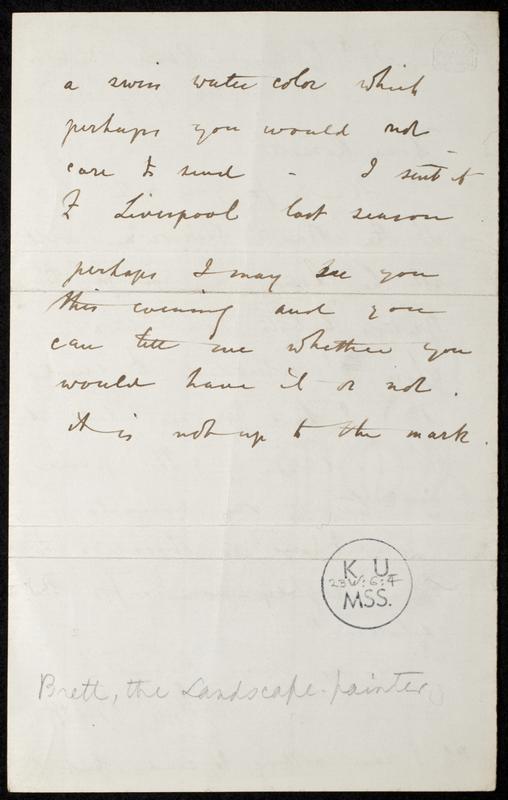 a swiss water color which
perhaps you would not
care to send - I sent it
to Liverpool last season
perhaps I may see you
this evening and you
can tell me whether you
would have it or not.
it is not up to the mark.
K. U.
23W: G: F
MSS.
Brett, the Landscape-painter